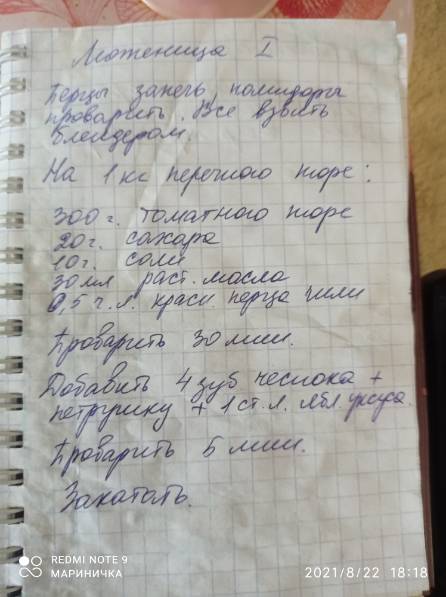 Лютеница I
Перцы запечь, помидоры
проварить. Все взбить
блендером.
На 1 кг перечного пюре:
300 г. томатного пюре
20 г. сахара
10 г. соли
30 мл раст. масла
0,5 ч.л. красн. перца чили
Проварить 30 мин.
Добавить 4 зуб чеснока +
петрушку + 1 ст.л. ябл. уксуса.
Проварить 5 мин.
Закатать.
REDMI NOTE 9
МАРИНИЧКА
2021/8/22 18:18